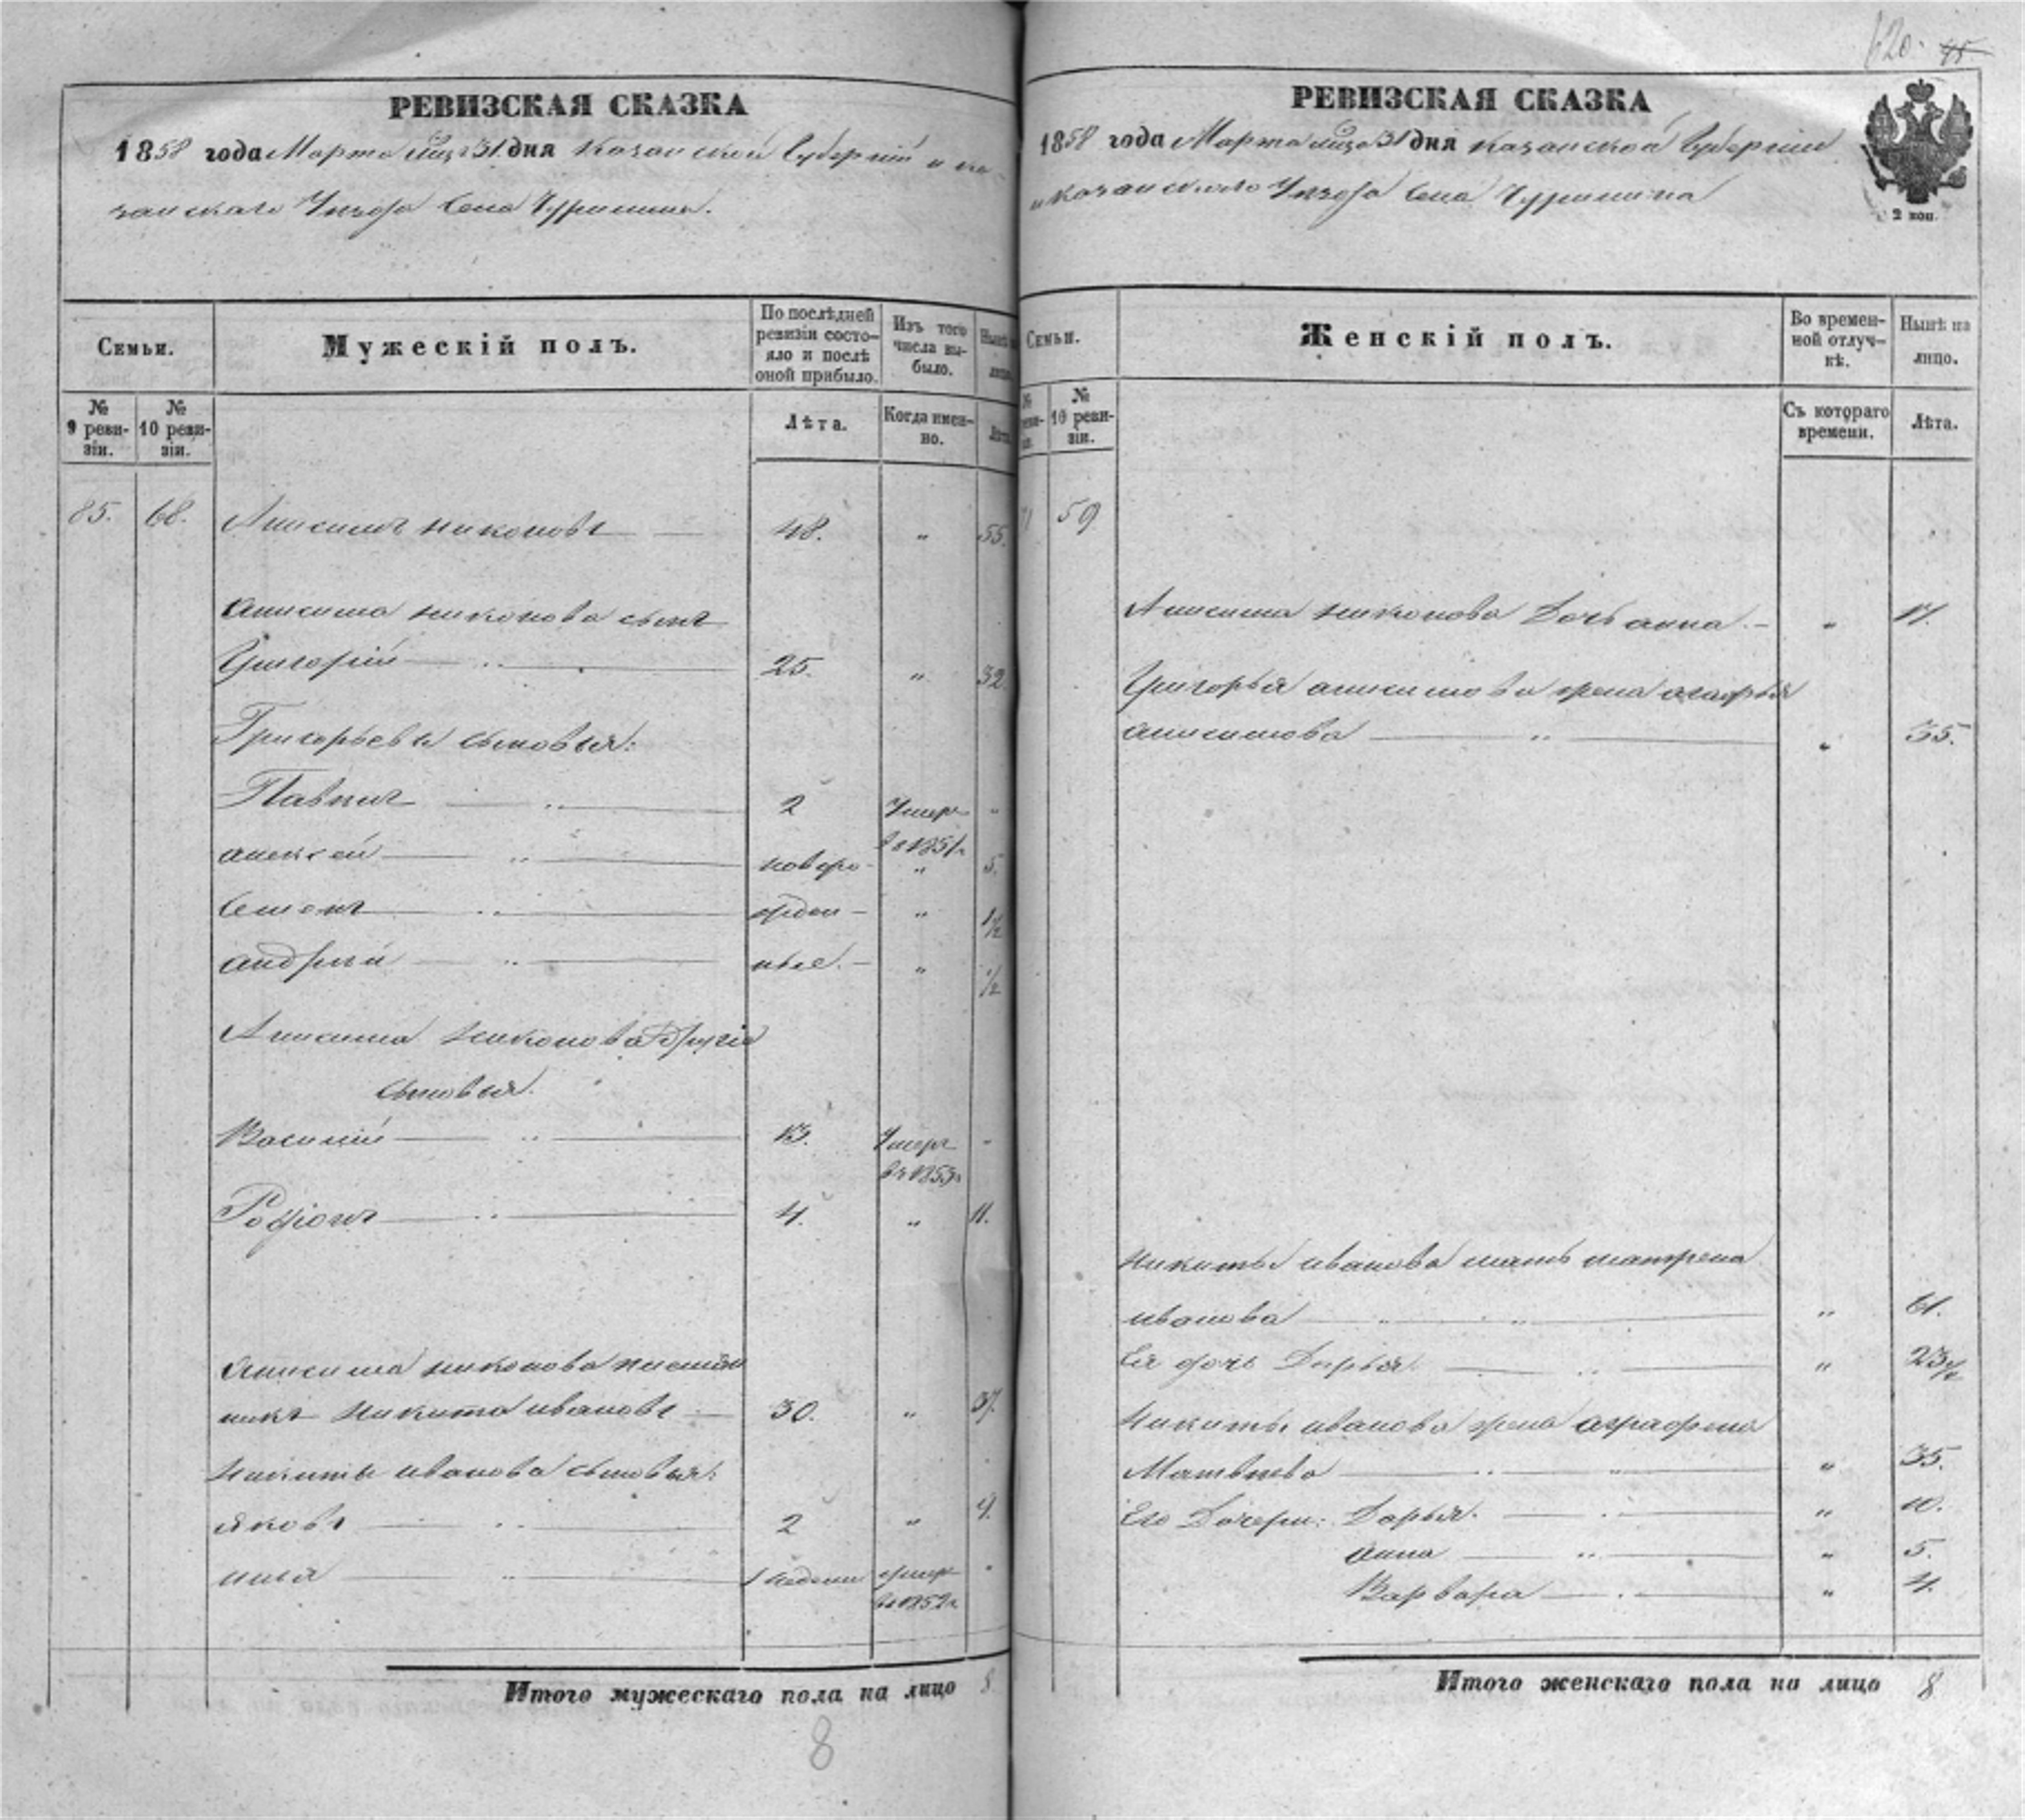 120. 45
РЕВИЗСКАЯ СКАЗКА
1858 года Марта 31 дня Казанской Губерніи и Ка-
занскаго Уезда Села
Семьи.
Мужескій полъ.
По послѣдней ревизіи состо-
яло и послѣ
оной прибыло.
Изъ того
числа вы-
было.
Нынѣ на
лицо.
№
9 реви-
зіи.
№
10 реви-
зіи.
Лѣта.
Когда имен-
но.
Лѣта.
85. 68. Анисимъ Никоновъ 48. " 55.
Анисима Никонова сынъ
Григорій 25. " 32
Григорьевы сыновья:
Павелъ 2 Умеръ "
въ 1851г
Алексей новоро- " 5.
Семенъ жден- " 1 1/2
Андрей ные. " 1/2
Анисима Никонова другіе
сыновья.
Василій 13. Умеръ "
въ 1855г
Родіонъ 4. " 11.
Анисима Никонова племян
никъ Никита Ивановъ 30. " 37.
Никиты Иванова сыновья:
Яковъ 2 " 9.
Илья 1 недели умеръ "
въ 1852г.
Итого мужескаго пола на лицо 8
8
РЕВИЗСКАЯ СКАЗКА
1858 года Марта 31 дня Казанской Губерніи
и Казанскаго Уезда Села
2 коп.
Семьи.
Женскій полъ.
Во времен-
ной отлуч-
кѣ.
Нынѣ на
лицо.
№
10 реви-
зіи.
Съ котораго
времени.
Лѣта.
71 59
Анисима Никонова Дочь Анна. " 17.
Григорья Анисимова жена Агафья
Анисимова " 35.
Никиты Иванова мать Матрена
Иванова " 61.
Ея дочь Дарья. " 23 1/2
Никиты Иванова жена Аграфена
Матвѣева " 35.
Его Дочери: Дарья. " 10.
Анна " 5.
Варвара " 4.
Итого женскаго пола на лицо 8